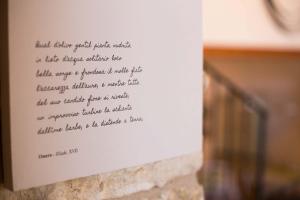 Qual d'olivo gentil pianta nudrita
in lieto d'acque solitario loco
bella sorge e frondosa: il molle fiato
l'accarezza dell'aure, e mentre tutta
del suo candido fiore si riveste,
un improvviso turbine la schianta
dall'ime barbe, e la distende a terra;
Omero - Iliade, XVII